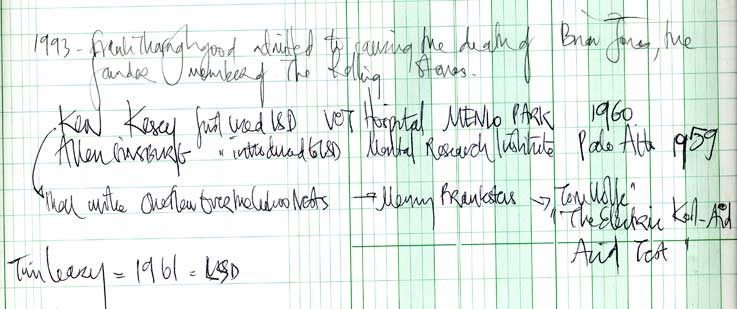 1993 - Frank Thoroughgood admitted to causing the death of Brian Jones, the
founder member of The Rolling Stones.
Ken Kesey first used LSD VET Hospital MENLO PARK 1960
Allen Ginsburg "introduced to LSD Mental Research Institute Palo Alto 1959
that wrote One Flew over the Cuckoos Nest → Merry Pranksters → Tom Wolfe"
"The Electric Kool-Aid
Acid Test"
Tim Leary = 1961 = LSD